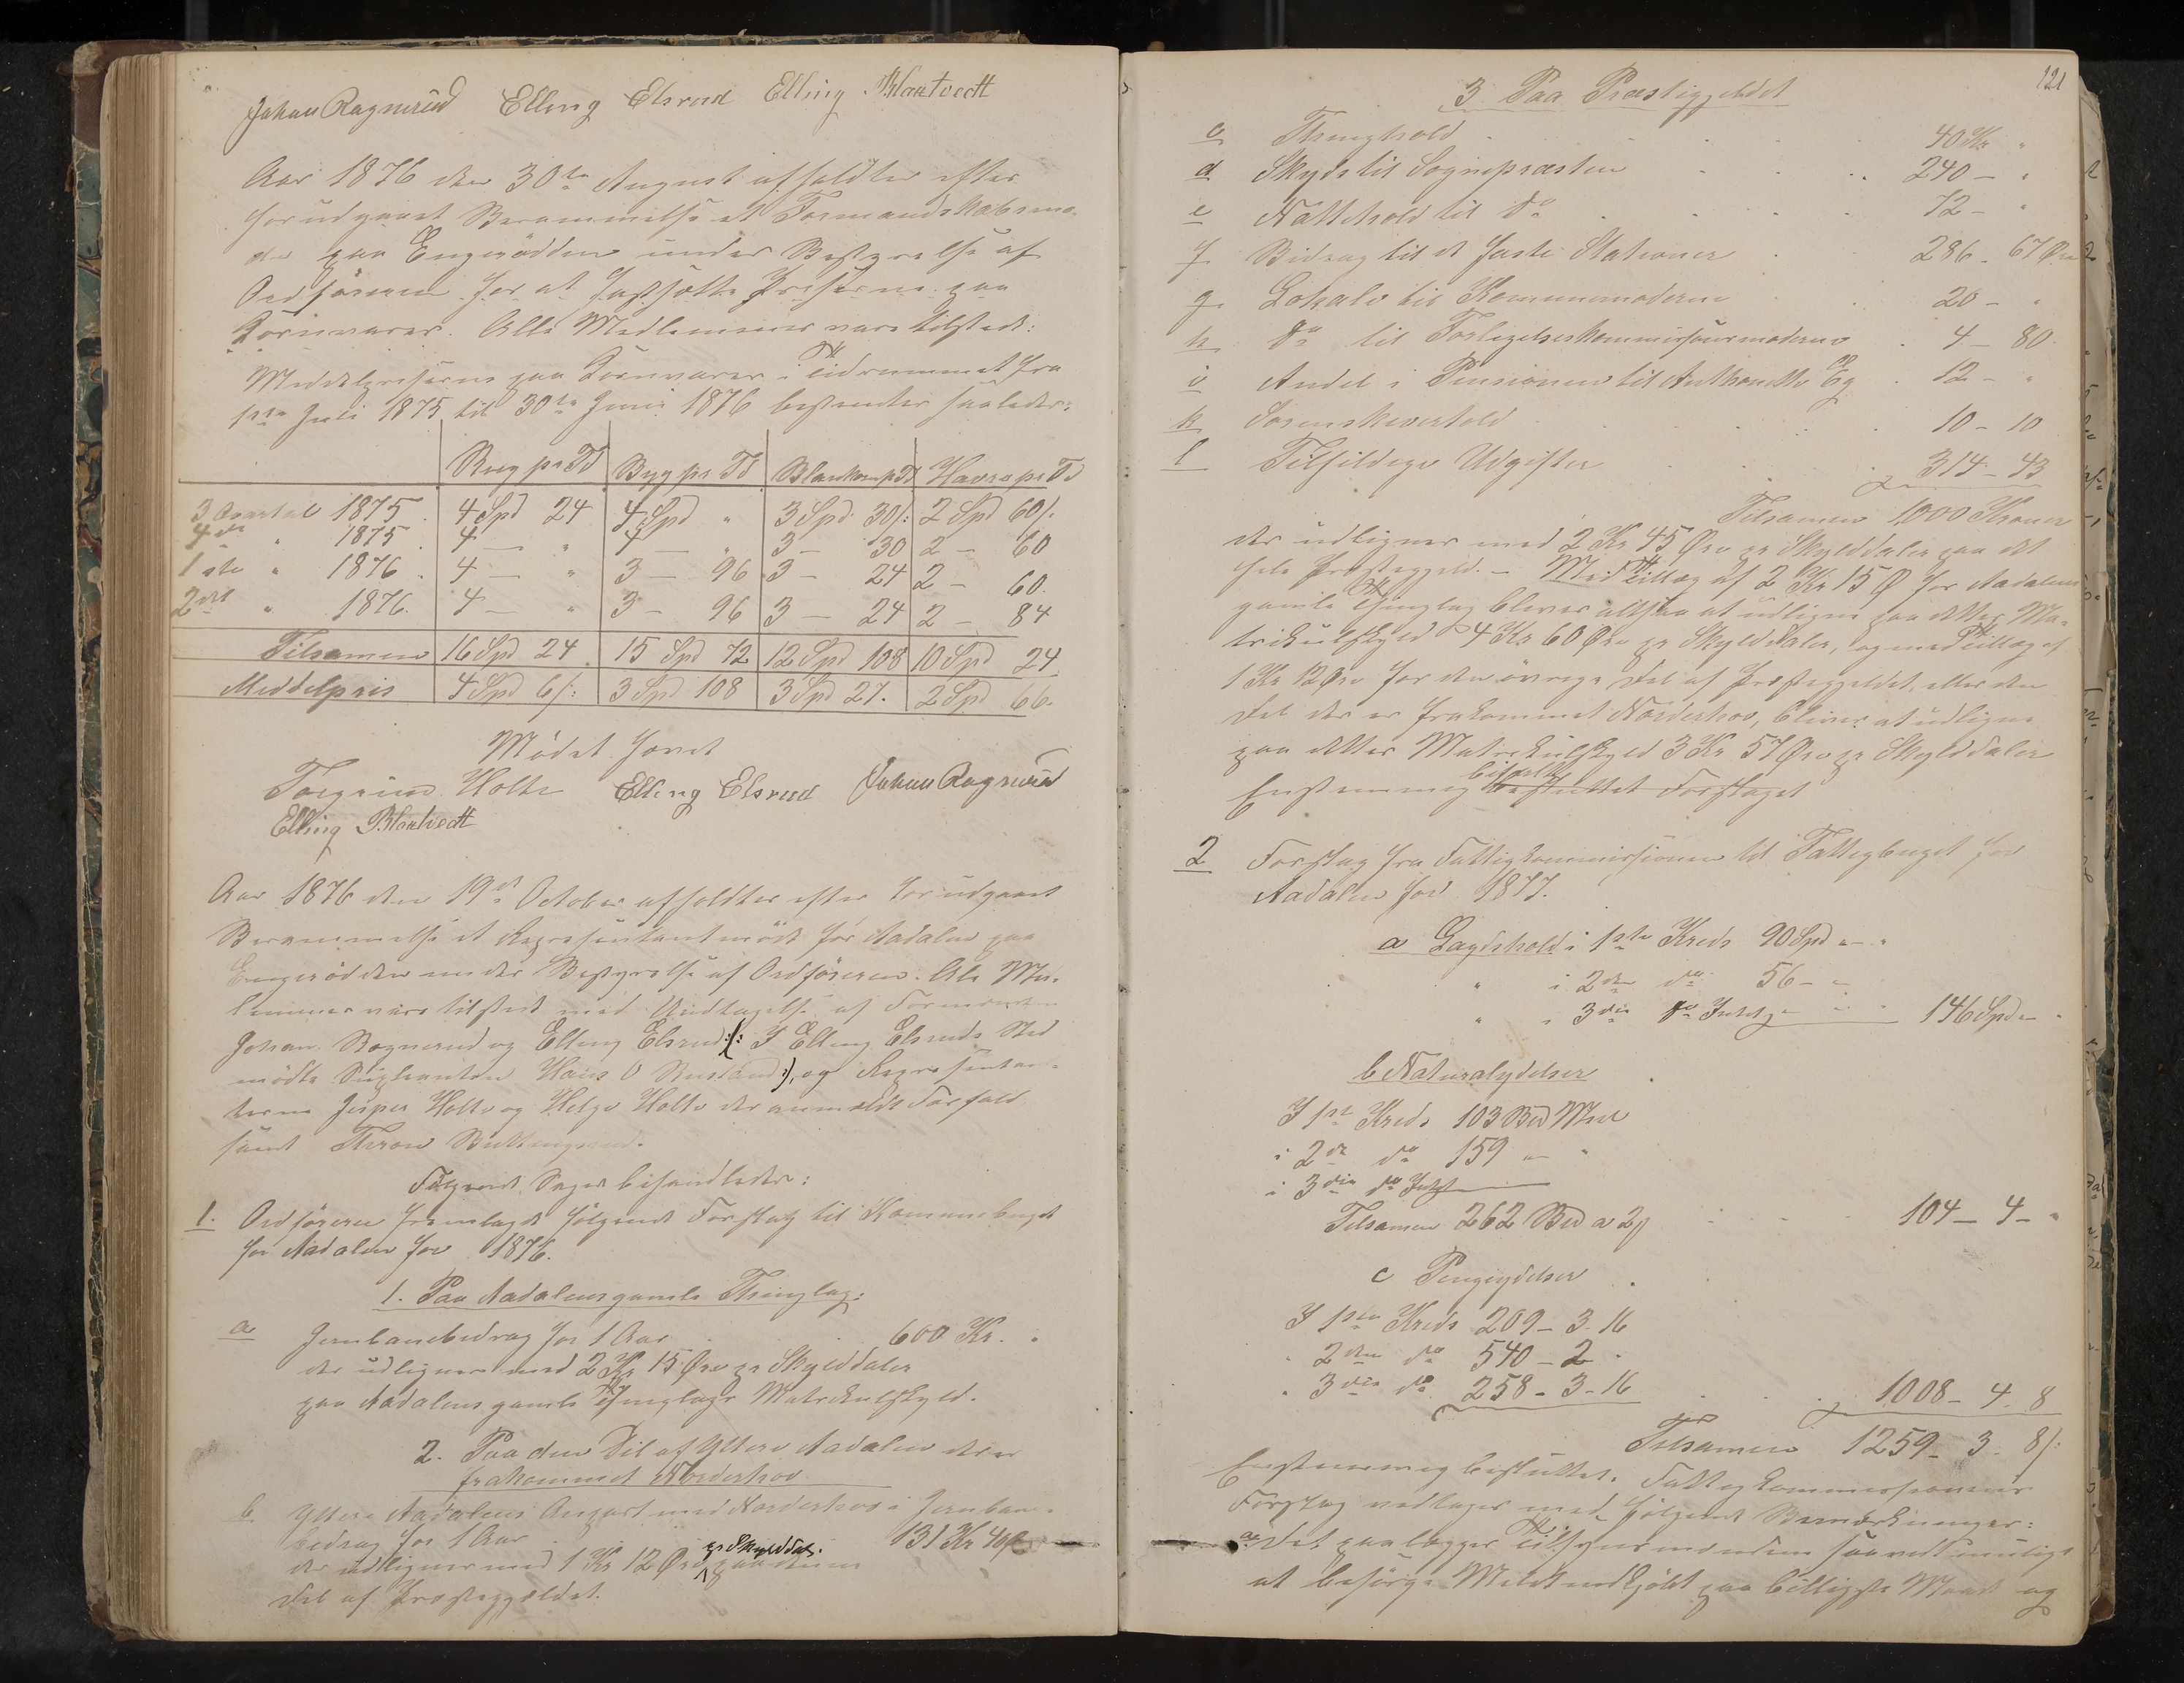 Johan Ragnerud Elling Elsrud Elling Blaktvedt
Aar 1876 den 30te August afholdtes efter
forudgaaet Berammelse et Formandskabsmø-
de paa Engerodden under Bestyrelse af
Ordføreren for at fastsætte Priserne paa
Kornvarer. Alle Medlemmer vare tilstede:
Middelpriserne paa Kornvarer i Tidrummet fra
1ste Juli 1875 til 30te Juni 1876 bestemtes saaledes:
Rug pr Td Byg pr Td Blankorn pr Td Havre pr Td
3 Qvartal 1875 . 4 Spd 24 4 Spd " 3 Spd 30/: 2 Spd 60/:
4de " 1875 . 4 — " 4 — " 3 — 30 2 — 60
1ste " 1876 . 4 — " 3 — 96 3 — 24 2 — 60.
2det " 1876. 4 — " 3 — 96 3 — 24 2 — 84
Tilsamen 16 Spd 24 15 Spd 72 12 Spd 108 10 Spd 24
Middelpris 4 Spd 6/: 3 Spd 108 3 Spd 27. 2 Spd 66.
Mødet hævet
Holte Elling Elsrud Johan Ragnerud
Elling Blaktvedt
Aar 1876 den 19de October afholdtes efter forudgaaet
Berammelse et Repræsentantmøde for Aadalen paa
Engerodden under Bestyrelse af Ordføreren. Alle Med-
lemmer vare tilstede med Undtagelse af Formændene
Johan Ragnerud og Elling Elsrud /: I Elling Elsruds Sted
mødte Suppleanten Hans O :/, og Repræsentan-
terne Jesper Holte og Helge Holte der anmeldte Forfald
samt
Følgende Sager behandledes:
1. Ordføreren fremlagde følgende Forslag til Kommunebuget
for Aadalen for 1876.
1. Paa Aadalens gamle Thinglag:
a Jernbanebidrag for 1 Aar . . 600 Kr. "
der udlignes med 2 Kr 15 Øre pr Skylddaler
paa Aadalens gamle Thinglags Matrikulskyld.
2. Paa den Del af Ytere Aadalen der er
frakommet Norderhov
b. Ytere Aadalens Anpart med Norderhov i Jernban-
bidrag for 1 Aar . 131 Kr 40 Ø
der udlignes med 1 Kr 12 Øre pr Skylddal. paa den
Del af Præstegjældet.
121
3 Paa Præstegjeldet
c Thinghold . . . . 40 Kr "
d Skyds til Sognepræsten . . . 240 — "
e Nattehold til do . . . . 72 — "
f Bidrag til de faste Stationer . . 286 - 67 Øre
g Lokale til Kommunemøderne . . 20 — "
h do til Forligelseskommissionsmøderne . 4 — 80
i Andel i Pensionen til . 12 — "
k Sorenskrivertold . . . . 10 — 10
l Tilfældige Udgifter . . . 314 — 43
Tilsamen 1000 Kroner
der udlignes med 2 Kr 45 Øre pr Skylddaler paa det
hele Præstegjeld. — Med Tillæg af 2 Kr 15 Ø for Aadalens
gamle Thinglag bliver altsaa at udligne paa dettes Ma-
trikulskyld 4 Kr 60 Øre pr Skylddaler, og med Tillæg af
1 Kr 12 Øre for den øvrige Del af Præstegjeldet, eller den
Del der er frakommet Norderhov, bliver at udligne
paa dettes Matrikulskyld 3 Kr 57 Øre pr Skylddaler
bifaldt
Enstemmig besluttet Forslaget
2 Forslag fra Fattigkommissionen til Fattigbuget for
Aadalen for 1877.
a Lægdshold i 1ste Kreds 90 Spd " — "
" i 2den do 56 — "
" i 3die do Intet 146 Spd " — "
b Naturalydelser
I 1ste Kreds 103 Bd Meel
i 2de do 159 — "
i 3die do Intet
Tilsamen 262 Bd a 2 . . . 104 — 4 — "
c Pengeydelser .
I 1ste Kreds 209 — 3. 16
" 2den do 540 — 2 "
" 3die do 258 — 3 — 16 . . . 1008 — 4. 8
Tilsamen 1259 — 3 — 8/:
Enstemmig besluttet. Fattigkommissionens
Forslag vedtages med følgende Bemærkninger:
a Det paalægges Tilsynsmændene saavidt muligt
at besørge Melet indkjøbt paa billigste Maade og